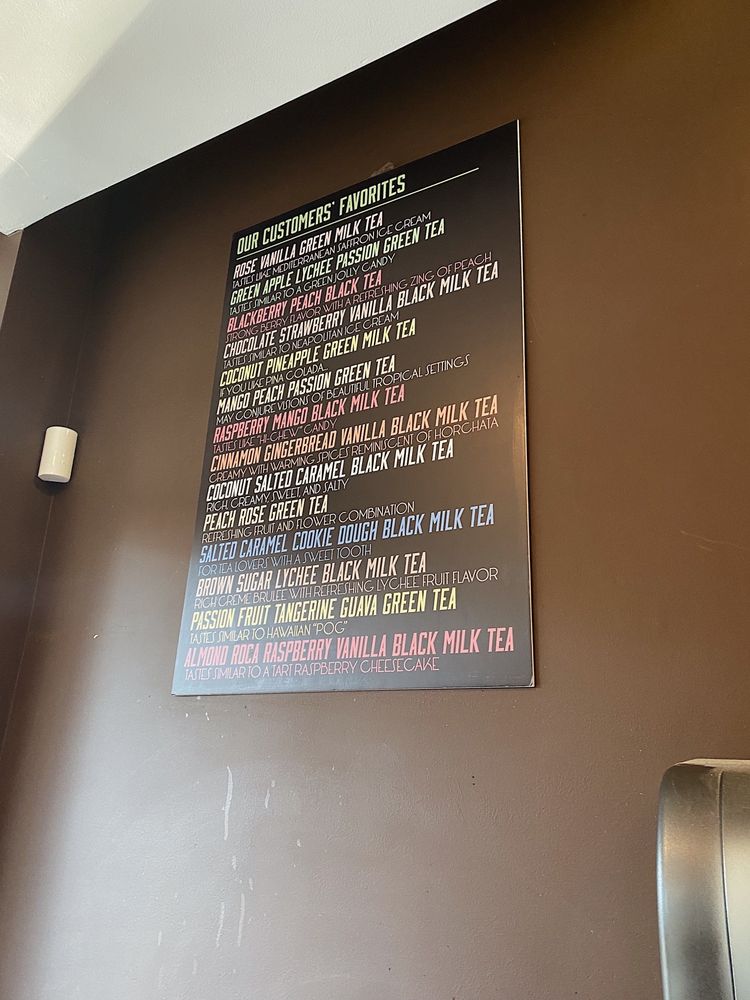 OUR CUSTOMERS' FAVORITES
ROSE VANILLA GREEN MILK TEA
TASTES LIKE MEDITERRANEAN SAFFRON ICE CREAM
GREEN APPLE LYCHEE PASSION GREEN TEA
TASTES SIMILAR TO A GREEN JOLLY CANDY
BLACKBERRY PEACH BLACK TEA
STRONG BERRY FLAVOR WITH A REFRESHING ZING OF PEACH
CHOCOLATE STRAWBERRY VANILLA BLACK MILK TEA
TASTES SIMILAR TO NEAPOLITAN ICE CREAM
COCONUT PINEAPPLE GREEN MILK TEA
IF YOU LIKE PINA COLADA...
MANGO PEACH PASSION GREEN TEA
MAY CONJURE VISIONS OF BEAUTIFUL TROPICAL SETTINGS
RASPBERRY MANGO BLACK MILK TEA
TASTES LIKE "HI-CHEW" CANDY
CINNAMON GINGERBREAD VANILLA BLACK MILK TEA
CREAMY WITH WARMING SPICES REMINISCENT OF HORCHATA
COCONUT SALTED CARAMEL BLACK MILK TEA
RICH, CREAMY, SWEET, AND SALTY
PEACH ROSE GREEN TEA
REFRESHING FRUIT AND FLOWER COMBINATION
SALTED CARAMEL COOKIE DOUGH BLACK MILK TEA
FOR TEA LOVERS WITH A SWEET TOOTH
BROWN SUGAR LYCHEE BLACK MILK TEA
RICH CREME BRULEE WITH REFRESHING LYCHEE FRUIT FLAVOR
PASSION FRUIT TANGERINE GUAVA GREEN TEA
TASTES SIMILAR TO HAWAIIAN "POG"
ALMOND ROCA RASPBERRY VANILLA BLACK MILK TEA
TASTES SIMILAR TO A TART RASPBERRY CHEESECAKE